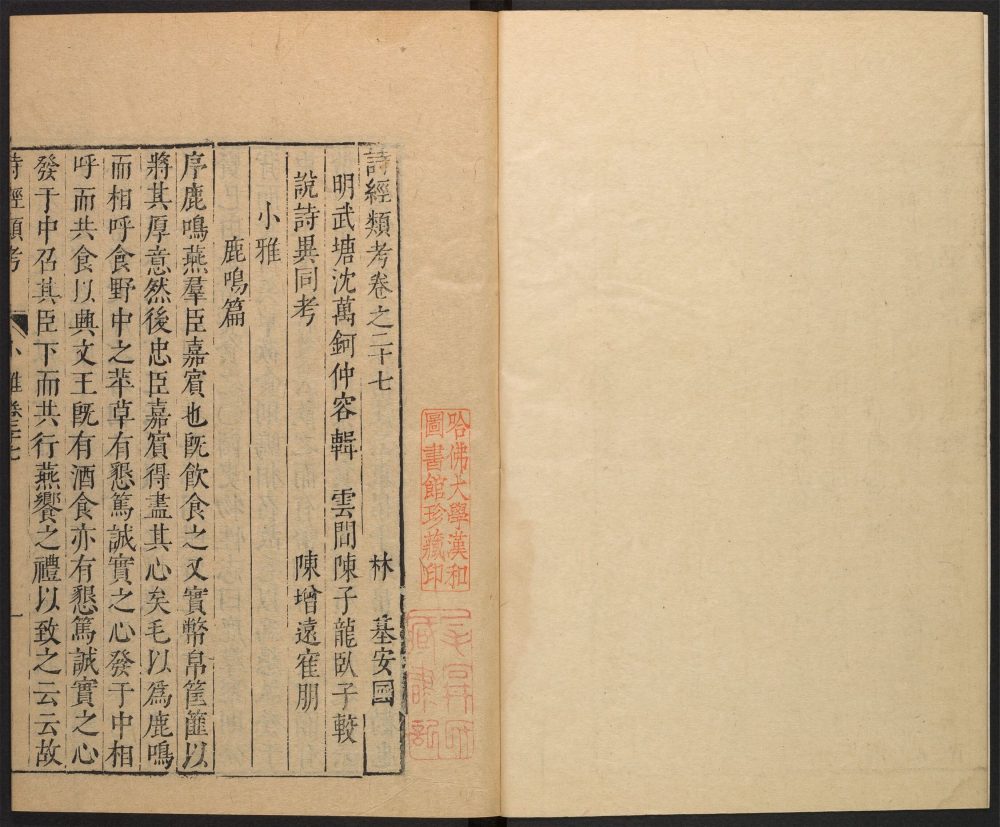 詩經類考卷之二十七
林　基安國
明武塘沈萬鈳仲容輯　雲間陳子龍臥子較
說詩異同考　陳增遠寉朋
小雅
鹿鳴篇
序鹿鳴燕羣臣嘉賓也旣飮食之又實幣帛筐篚以
將其厚意然後忠臣嘉賓得盡其心矣毛以爲鹿鳴
而相呼食野中之苹草有懇篤誠實之心發于中相
呼而共食以興文王旣有酒食亦有懇篤誠實之心
發于中召其臣下而共行燕饗之禮以致之云云故
詩經類考　小雅卷二十七　一
哈佛大學漢和
圖書館珍藏印